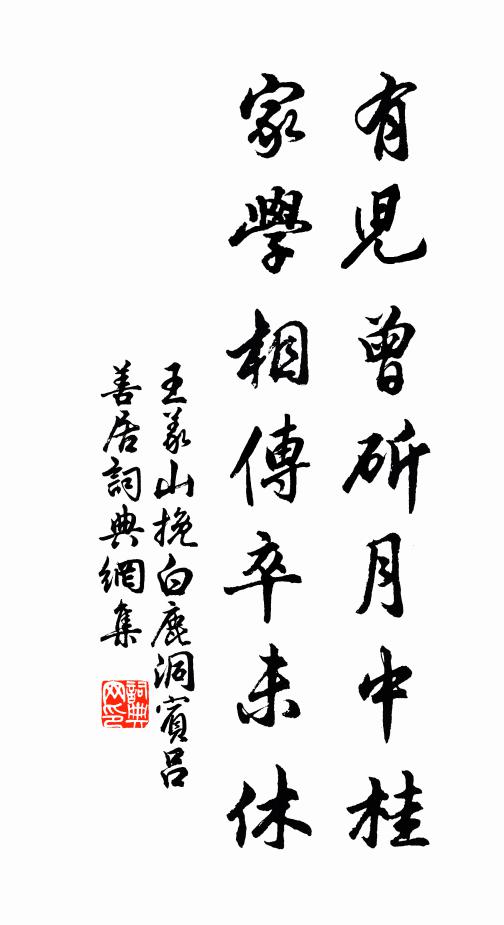 有児曾斫月中桂
家學相傳卒未休
王義山挽白鹿洞賓呂
善居詞典網集
詞典
网印